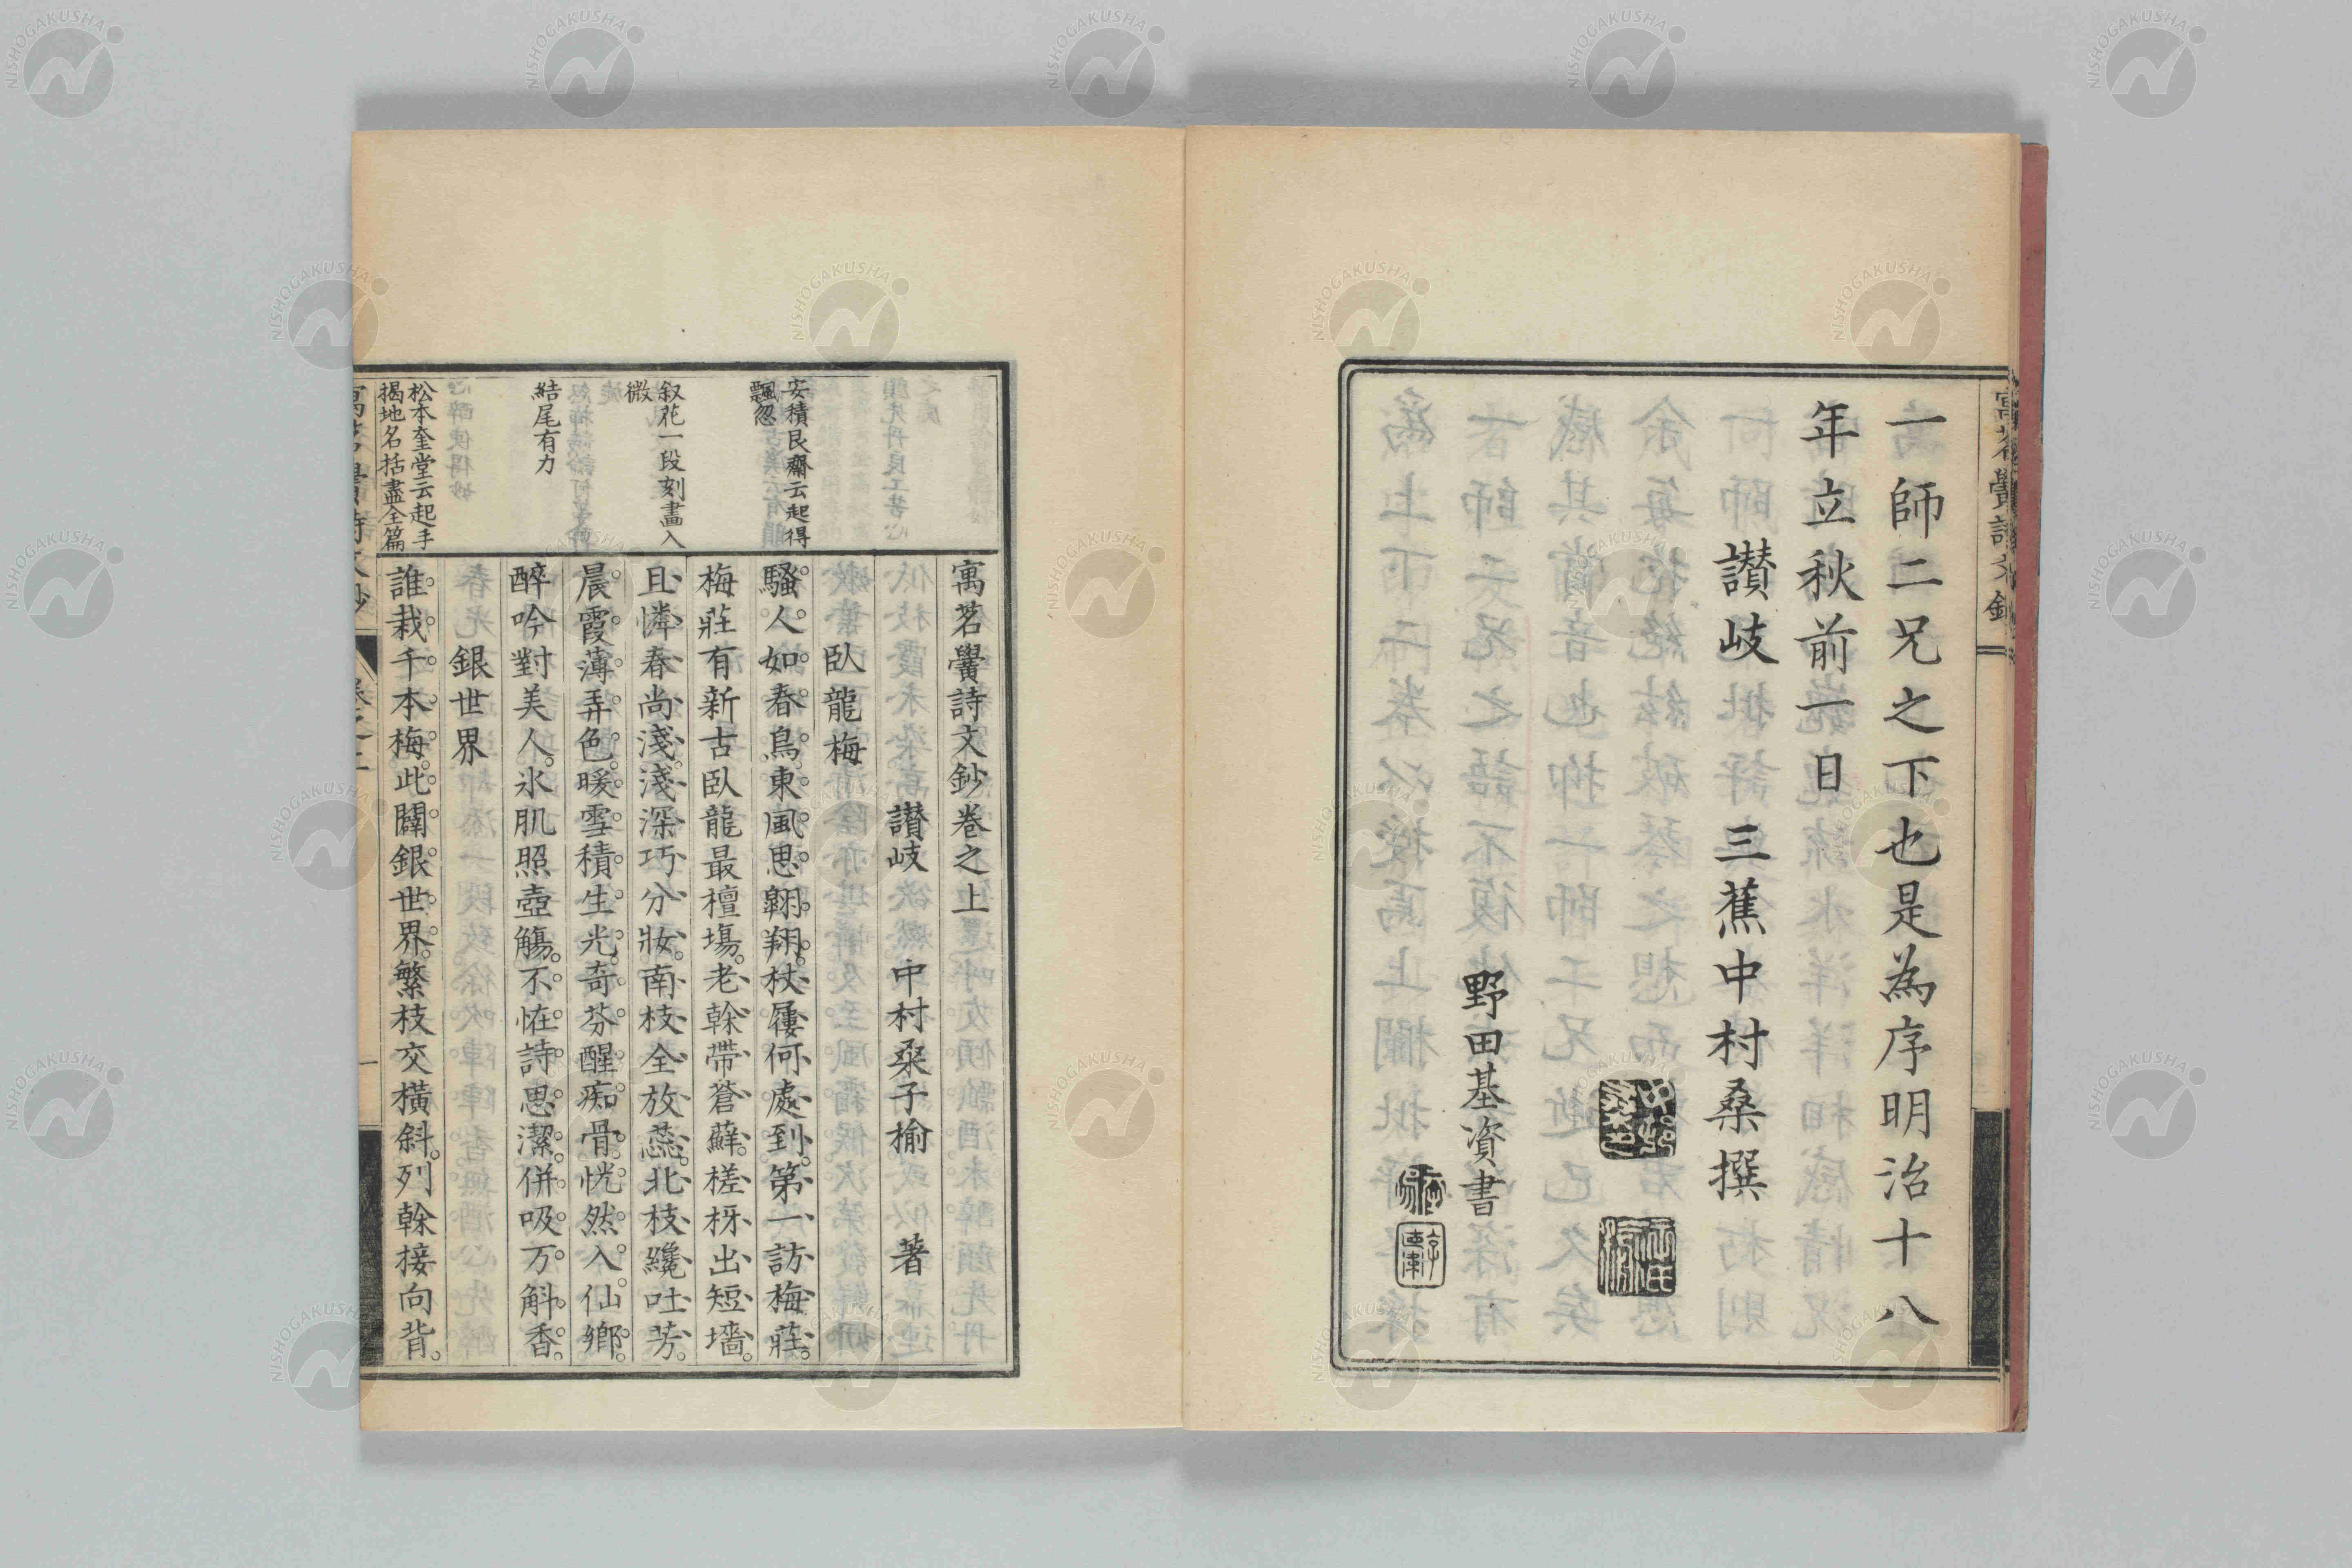 一師二兄之下也是為序明治十八
年立秋前一日
讃岐 三蕉中村桑撰
野田基資書
寓茗黌詩文鈔卷之上
讃岐 中村桑子榆 著
臥龍梅
騷人如春鳥東風思翶翔杖屨何處到第一訪梅莊
梅莊有新古臥龍最擅塲老榦帶蒼蘚槎枒出短墻
且憐春尚淺淺深巧分妝南枝全放蕊北枝纔吐芳
晨霞薄弄色暖雪積生光奇芬醒痴骨恍然入仙鄉
醉吟對美人氷肌照壺觴不恠詩思潔併吸万斛香
銀世界
誰栽千本梅此闢銀世界繁枝交橫斜列榦接向背
安積艮齋云起得
飄忽
叙花一段刻畫入
微
結尾有力
松本奎堂云起手
揭地名括盡全篇
NISHOGAKUSHA